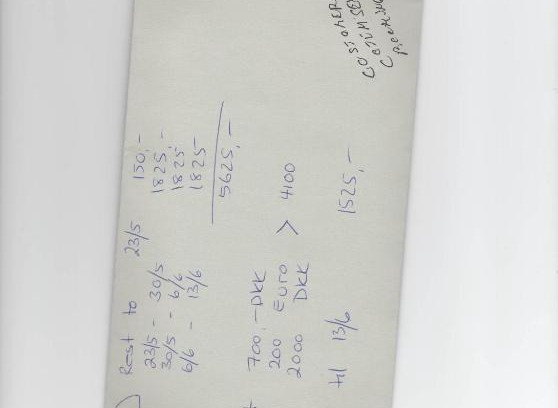 Rest to 23/5 150,-
23/5 - 30/5 1825,-
30/5 - 6/6 1825
6/6 - 13/6 1825
5625,-
700,- DKK
200 Euro > 4100
2000 DKK
til 13/6 1525,-